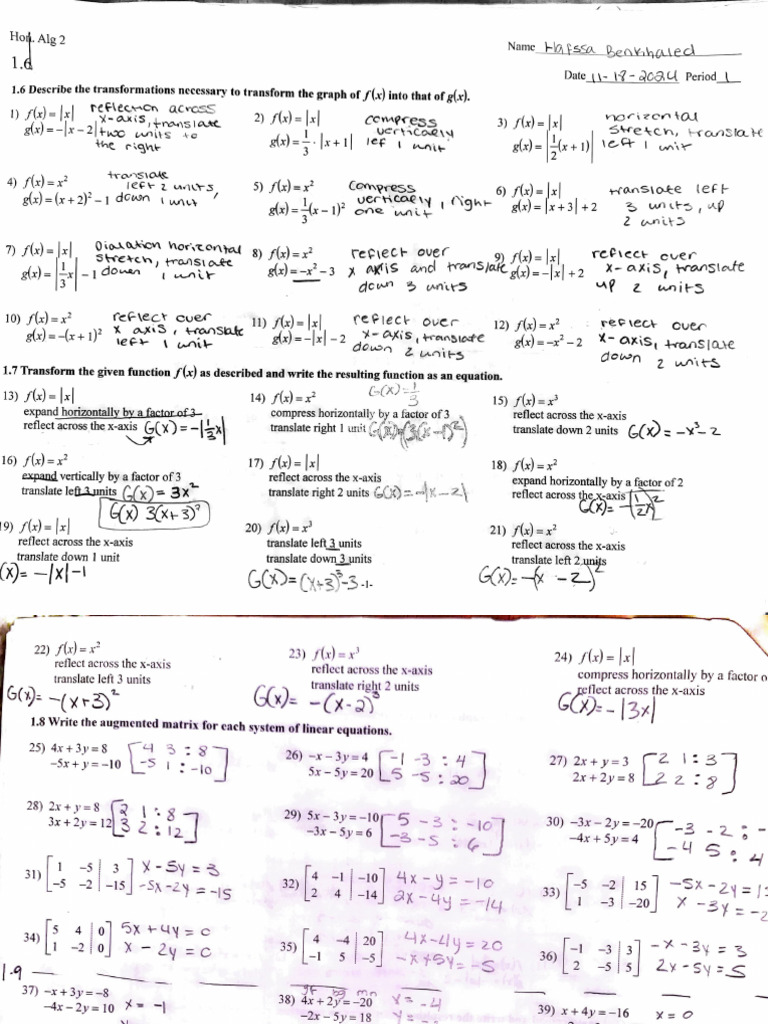 Hon. Alg 2
Name Hafssa Benkihaled
1.6
Date 11-18-2024 Period 1
1.6 Describe the transformations necessary to transform the graph of f(x) into that of g(x).
1) f(x) = |x| reflection across
g(x) = -|x - 2| x-axis, translate
two units to
the right
2) f(x) = |x| compress
g(x) = 1/3 · |x + 1| verticaely
lef 1 unit
3) f(x) = |x| horizental
g(x) = |1/2 (x + 1)| stretch, translate
left 1 unit
4) f(x) = x² translate
g(x) = (x + 2)² - 1 left 2 units,
down 1 unit
5) f(x) = x² compress
g(x) = 1/3 (x - 1)² verticaely, right
one unit
6) f(x) = |x| translate left
g(x) = |x + 3| + 2 3 units, up
2 units
7) f(x) = |x| Dialation horizontal
g(x) = |1/3 x| - 1 stretch, translate
down 1 unit
8) f(x) = x² reflect over
g(x) = -x² - 3 x axis and translate
down 3 units
9) f(x) = |x| reflect over
g(x) = -|x| + 2 x-axis, translate
up 2 units
10) f(x) = x² reflect over
g(x) = -(x + 1)² x axis, translate
left 1 unit
11) f(x) = |x| reflect over
g(x) = -|x| - 2 x-axis, translate
down 2 units
12) f(x) = x² reflect over
g(x) = -x² - 2 x-axis, translate
down 2 units
1.7 Transform the given function f(x) as described and write the resulting function as an equation.
13) f(x) = |x|
expand horizontally by a factor of 3
reflect across the x-axis G(x) = -|1/3 x|
14) f(x) = x² G(x) = 1/3
compress horizontally by a factor of 3
translate right 1 unit G(x) = (3(x-1)²)
15) f(x) = x³
reflect across the x-axis
translate down 2 units G(x) = -x³ - 2
16) f(x) = x²
expand vertically by a factor of 3
translate left 3 units G(x) = 3x²
G(x) 3(x+3)²
17) f(x) = |x|
reflect across the x-axis
translate right 2 units G(x) = -|x - 2|
18) f(x) = x²
expand horizontally by a factor of 2
reflect across the x-axis G(x) = -(1/2 x)²
19) f(x) = |x|
reflect across the x-axis
translate down 1 unit
(x) = -|x| - 1
20) f(x) = x³
translate left 3 units
translate down 3 units
G(x) = (x+3)³ - 3
21) f(x) = x²
reflect across the x-axis
translate left 2 units
G(x) = -(x - 2)²
22) f(x) = x²
reflect across the x-axis
translate left 3 units
G(x) = -(x+3)²
23) f(x) = x³
reflect across the x-axis
translate right 2 units
G(x) = -(x-2)³
24) f(x) = |x|
compress horizontally by a factor o
reflect across the x-axis
G(x) = -|3x|
1.8 Write the augmented matrix for each system of linear equations.
25) 4x + 3y = 8 [4 3 : 8
-5x + y = -10 -5 1 : -10]
26) -x - 3y = 4 [-1 -3 : 4
5x - 5y = 20 5 -5 : 20]
27) 2x + y = 3 [2 1 : 3
2x + 2y = 8 2 2 : 8]
28) 2x + y = 8 [2 1 : 8
3x + 2y = 12 3 2 : 12]
29) 5x - 3y = -10 [5 -3 : -10
-3x - 5y = 6 -3 -5 : 6]
30) -3x - 2y = -20 [-3 -2 : -
-4x + 5y = 4 -4 5 : 4
31) [1 -5 | 3 x - 5y = 3
-5 -2 | -15] -5x - 2y = -15
32) [4 -1 | -10 4x - y = -10
2 4 | -14] 2x - 4y = -14
33) [-5 -2 | 15 -5x - 2y = 1
1 -3 | -20] x - 3y = -2
34) [5 4 | 0 5x + 4y = 0
1 -2 | 0] x - 2y = 0
35) [4 -4 | 20 4x - 4y = 20
-1 5 | -5] -x + 5y = -5
36) [-1 -3 | 3 -x - 3y = 3
2 -5 | 5] 2x - 5y = 5
1.9
37) -x + 3y = -8
-4x - 2y = 10 x = -1
38) 4x + 2y = -20 x = -4
-2x - 5y = 18 y =
39) x + 4y = -16 x = 0